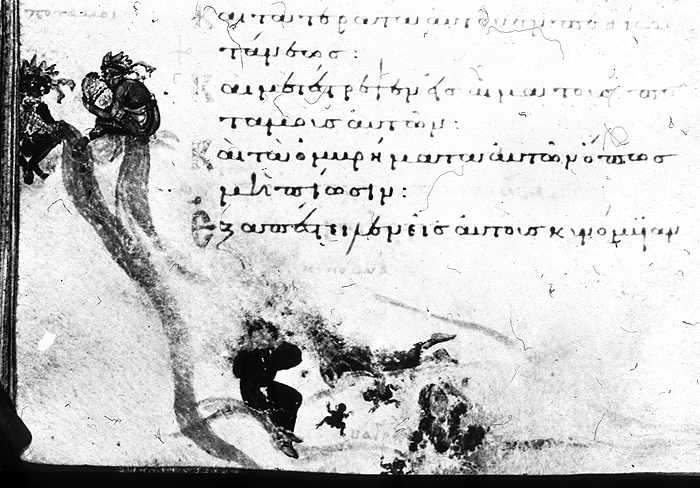 ποταμοί
Καὶ τὰ τέρατα αὐτοῦ ἐν πεδίω
τάνεως:
Καὶ μετέστρεψεν εἰς αἷμα τοὺς πο
ταμοὺς αὐτῶν:
Καὶ τὰ ὀμβρήματα αὐτῶν ὅπως
μὴ πίωσιν:
Ἐξαπέστειλεν εἰς αὐτοὺς κυνόμυιαν